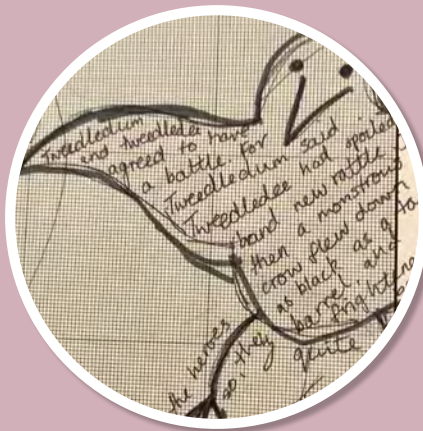 Tweedledum
and tweedledee
agreed to have
a battle. for
Tweedledum said
Tweedledee had spoiled
band new rattle
then a monstrous
crow flew down
as black as a ta
barrel, and
frightene
the heroes
so, they
quite